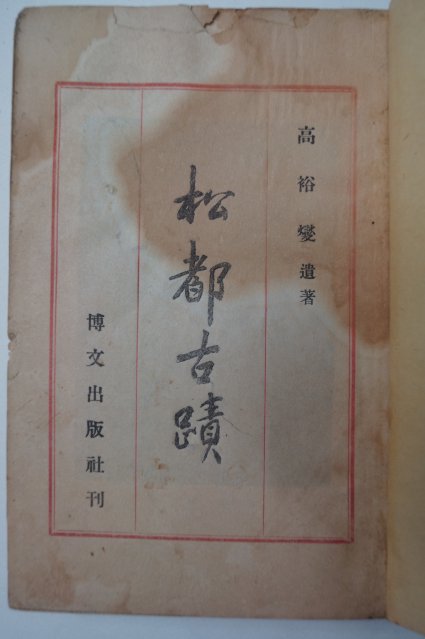 高裕燮遺著
松都古蹟
博文出版社刊